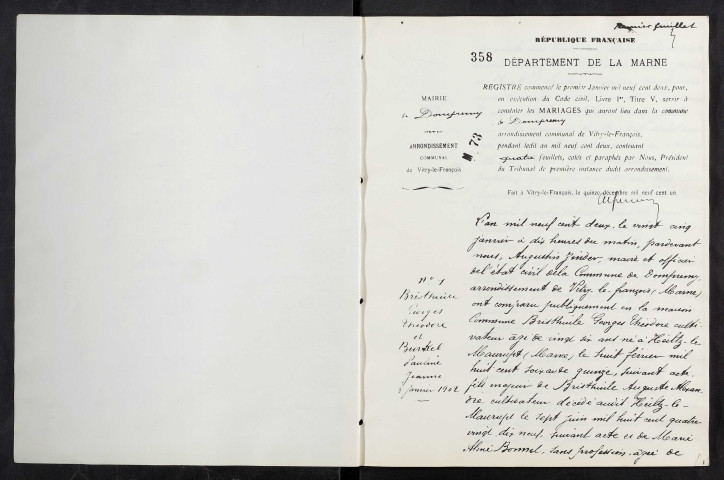 Premier feuillet
RÉPUBLIQUE FRANÇAISE
358
DÉPARTEMENT DE LA MARNE
MAIRIE
de Dompremy
ARRONDISSEMENT
COMMUNAL
de Vitry-le-François.
M. 73
REGISTRE commencé le premier Janvier mil neuf cent deux, pour,
en exécution du Code civil, Livre Ier, Titre V, servir à
constater les MARIAGES qui auront lieu dans la commune
de Dompremy
arrondissement communal de Vitry-le-François,
pendant ledit an mil neuf cent deux, contenant
quatre feuillets, cotés et paraphés par Nous, Président
du Tribunal de première instance dudit arrondissement.
Fait à Vitry-le-François, le quinze décembre mil neuf cent un.
n° 1
Georges
Théodore
et
Pauline
Jeanne
janvier 1902
L'an mil neuf cent deux, le vingt cinq
janvier à dix heures du matin, pardevant
nous, Augustin, maire et officier
de l'état civil de la Commune de Dompremy
arrondissement de Vitry-le-françois (Marne)
ont comparu publiquement en la maison
Commune Georges Théodore culti-
vateur âgé de vingt six ans né à Heiltz-le-
Maurupt (Marne) le huit février mil
huit cent soixante quinze, suivant acte
fils majeur de Auguste Alexan-
dre cultivateur décédé audit Heiltz-le-
Maurupt le sept juin mil huit cent quatre
vingt dix neuf, suivant acte et de Marie
Bonnel, sans profession, âgée de